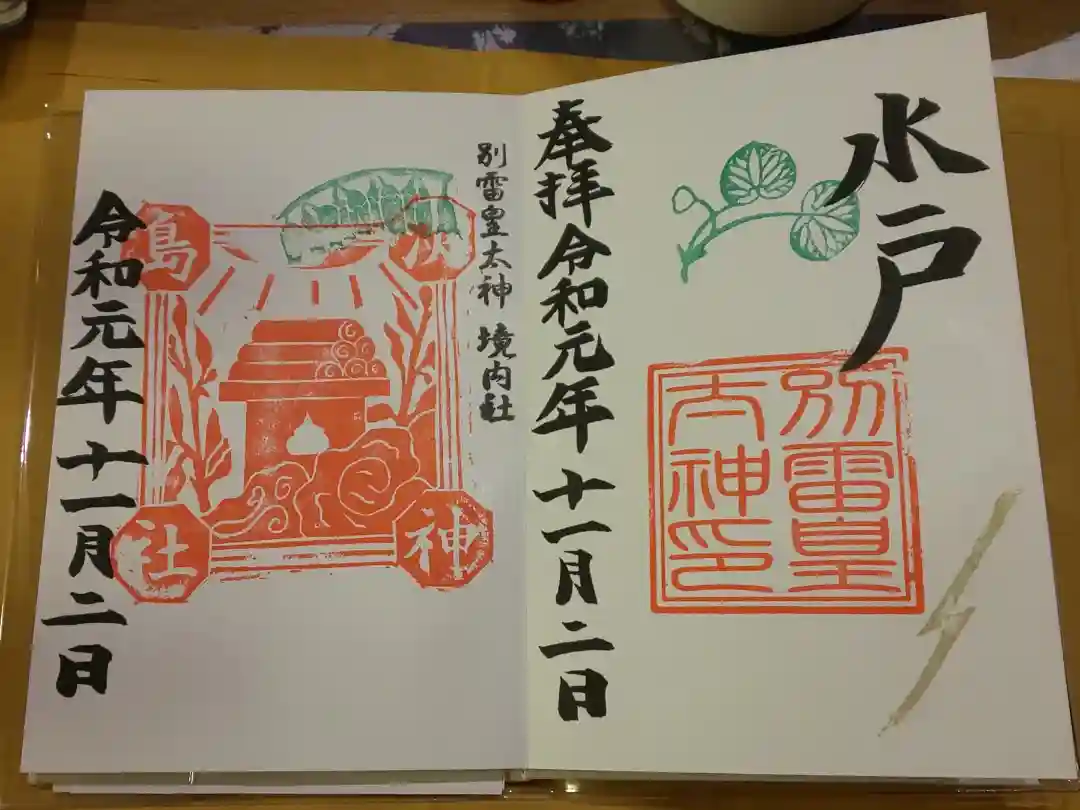 水戸
別雷皇
太神印
奉拝令和元年十一月二日
別雷皇太神 境内社
島
神社
令和元年十一月二日